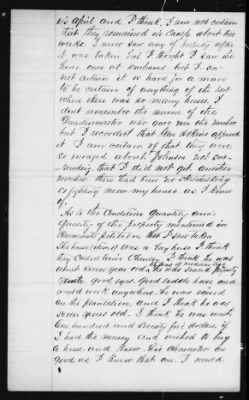 in April and I think, I am not certain
that they remained in Camp about two
weeks. I never saw any of property after
it was taken but I thought I saw the
horse once at Durhams but I am
not certain it is hard for a man
to be certain of anything of the sort
where there was so many horses. I
dont remember the name of the
Quartermaster who gave me the voucher
but I recollect that Mr Atkins approved
it I am certain of that they were
so enraged about Johnson not sur-
rendering that I did not get another
voucher. There had been no skirmishing
or fighting near my house as I know
of.
As to the Condition Quantity and
Quality of the property mentioned in
Claimants petition this I saw taken
The horse (item 1) was a bay horse I think
they called him Charley I think he was
about seven years old & he was sound pretty
gentle good eyes. Good saddle horse and
would work anywhere. He was raised
on the plantation, and I think he was
seven years old. I think he was worth
One hundred and twenty five dollars, if
I had the money and wished to buy
a horse and knew his character as
good as I knew that one. I would